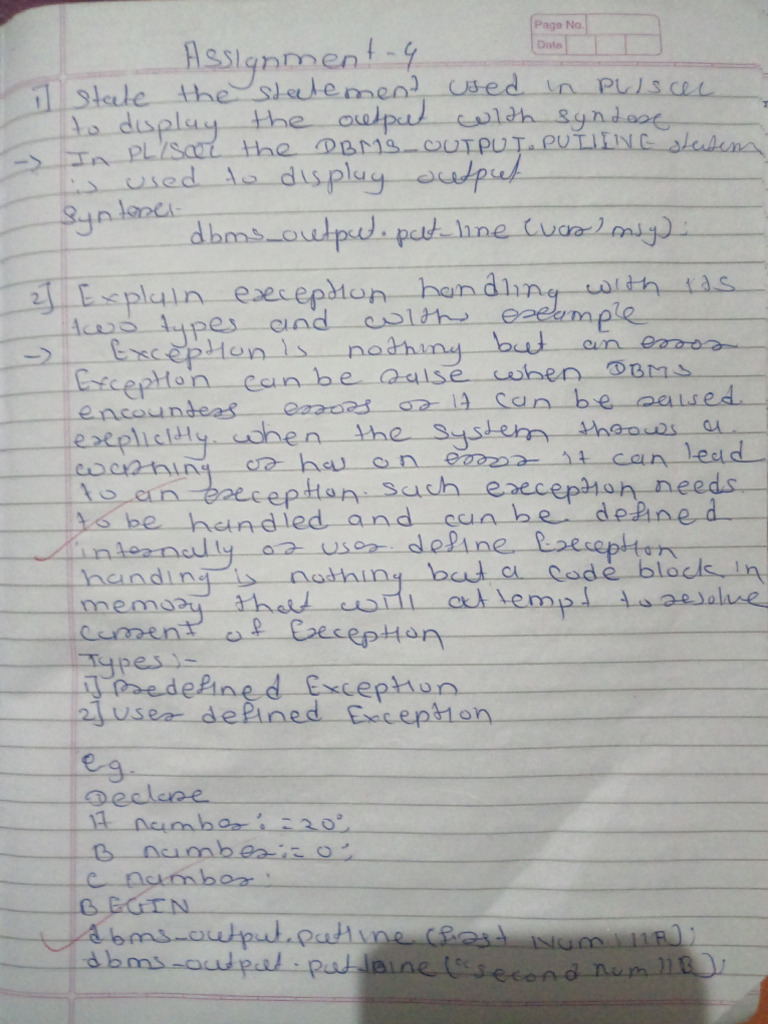 Page No.
Date
Assignment-4
1] State the statement used in PL/SQL
to display the output with syntax
-> In PL/SQL the DBMS_OUTPUT.PUTLINE statem
is used to display output
Syntax:-
dbms_output.put-line (var, msg);
2] Explain exeception handling with its
two types and with example
-> Exception is nothing but an error
Exception can be raise when DBMS
encounters errors or it can be raised
explicitly. when the system throws a
warning or has an error it can lead
to an exeception. such exeception needs
to be handled and can be defined
internally or user define Exeception
handing is nothing but a code block in
memory that will attempt to resolve
current of Exeception
Types:-
1] Predefined Exception
2] User defined Exception
eg.
Declare
A number:=20;
B number:=0;
C number:
BEGIN
dbms_output.putline (first Num 11A);
dbms_output.putline ("second num 11B);